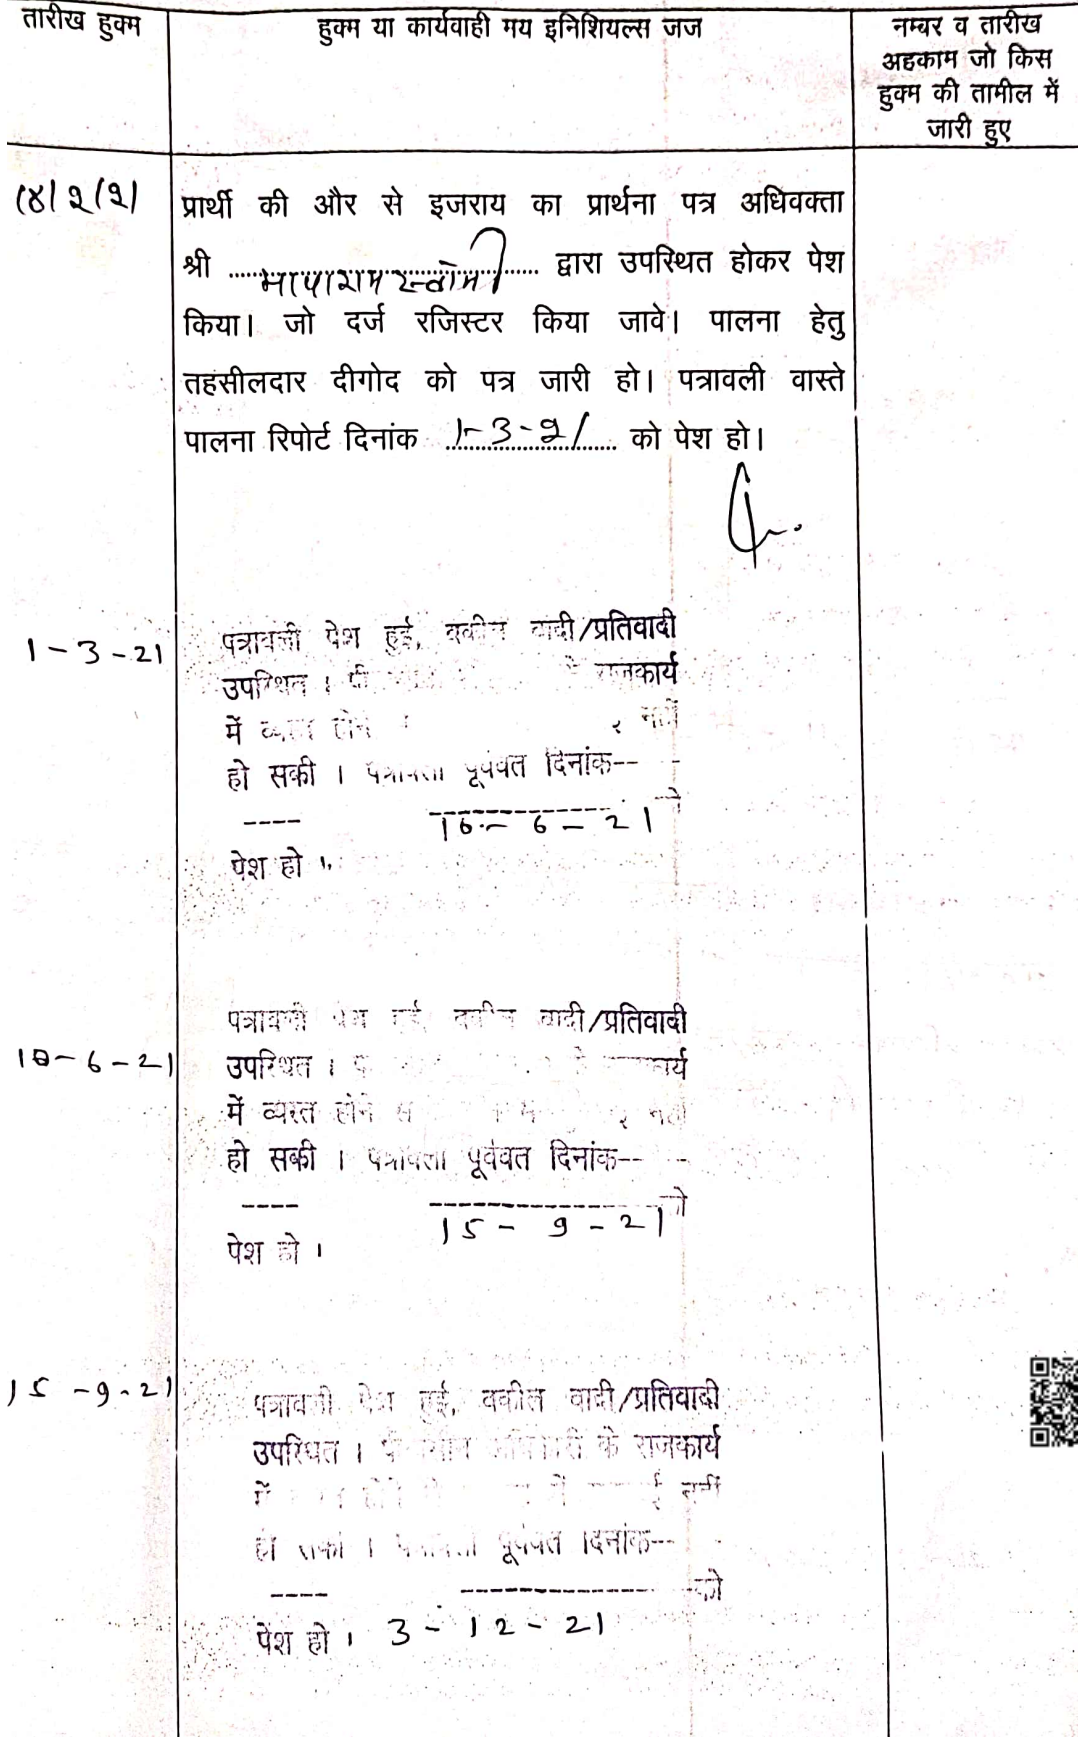 तारीख हुक्म
हुक्म या कार्यवाही मय इनिशियल्स जज
नम्बर व तारीख
अहकाम जो किस
हुक्म की तामील में
जारी हुए
प्रार्थी की और से इजराय का प्रार्थना पत्र अधिवक्ता
श्री .................. द्वारा उपस्थित होकर पेश
किया। जो दर्ज रजिस्टर किया जावे। पालना हेतु
तहसीलदार दीगोद को पत्र जारी हो। पत्रावली वास्ते
पालना रिपोर्ट दिनांक 1-3-21 को पेश हो।
1-3-21
पत्रावली पेश हुई, वकील वादी/प्रतिवादी
उपस्थित । राजकार्य
में व्यस्त होने नहीं
हो सकी । पत्रावली पूर्ववत दिनांक--
----
-6-21
पेश हो ।
पत्रावली पेश हुई, वकील वादी/प्रतिवादी
-6-21
उपस्थित ।
में व्यस्त होने नहीं
हो सकी । पत्रावली पूर्ववत दिनांक--
---- को
15-9-21
पेश हो ।
15-9-21
पत्रावली पेश हुई, वकील वादी/प्रतिवादी
उपस्थित । के राजकार्य
में होने नहीं
हो सकी । पत्रावली पूर्ववत दिनांक--
---- को
पेश हो । 3-12-21